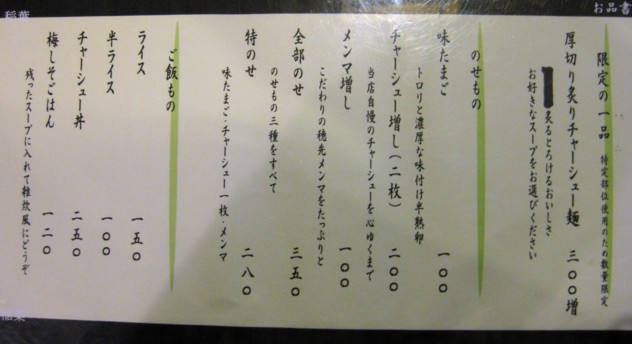 お品書
限定の一品 特定部位使用のため数量限定
厚切り炙りチャーシュー麺 三〇〇増
炙るとろけるおいしさ
お好きなスープをお選びください
のせもの
味たまご 一〇〇
トロリと濃厚な味付け半熟卵
チャーシュー増し(二枚) 二〇〇
当店自慢のチャーシューを心ゆくまで
メンマ増し 一〇〇
こだわりの穂先メンマをたっぷりと
全部のせ 三五〇
のせもの三種をすべて
特のせ 二八〇
味たまご・チャーシュー一枚・メンマ
ご飯もの
ライス 一五〇
半ライス 一〇〇
チャーシュー丼 二五〇
梅しそごはん 一二〇
残ったスープに入れて雑炊風にどうぞ
稲葉